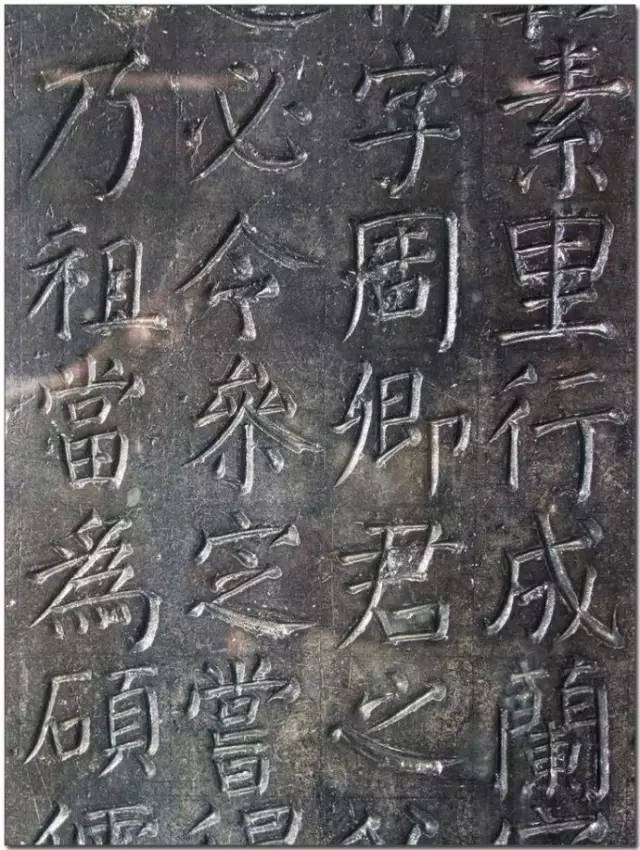 素里行成蘭
字周卿君之
必令參定嘗
乃祖當為碩